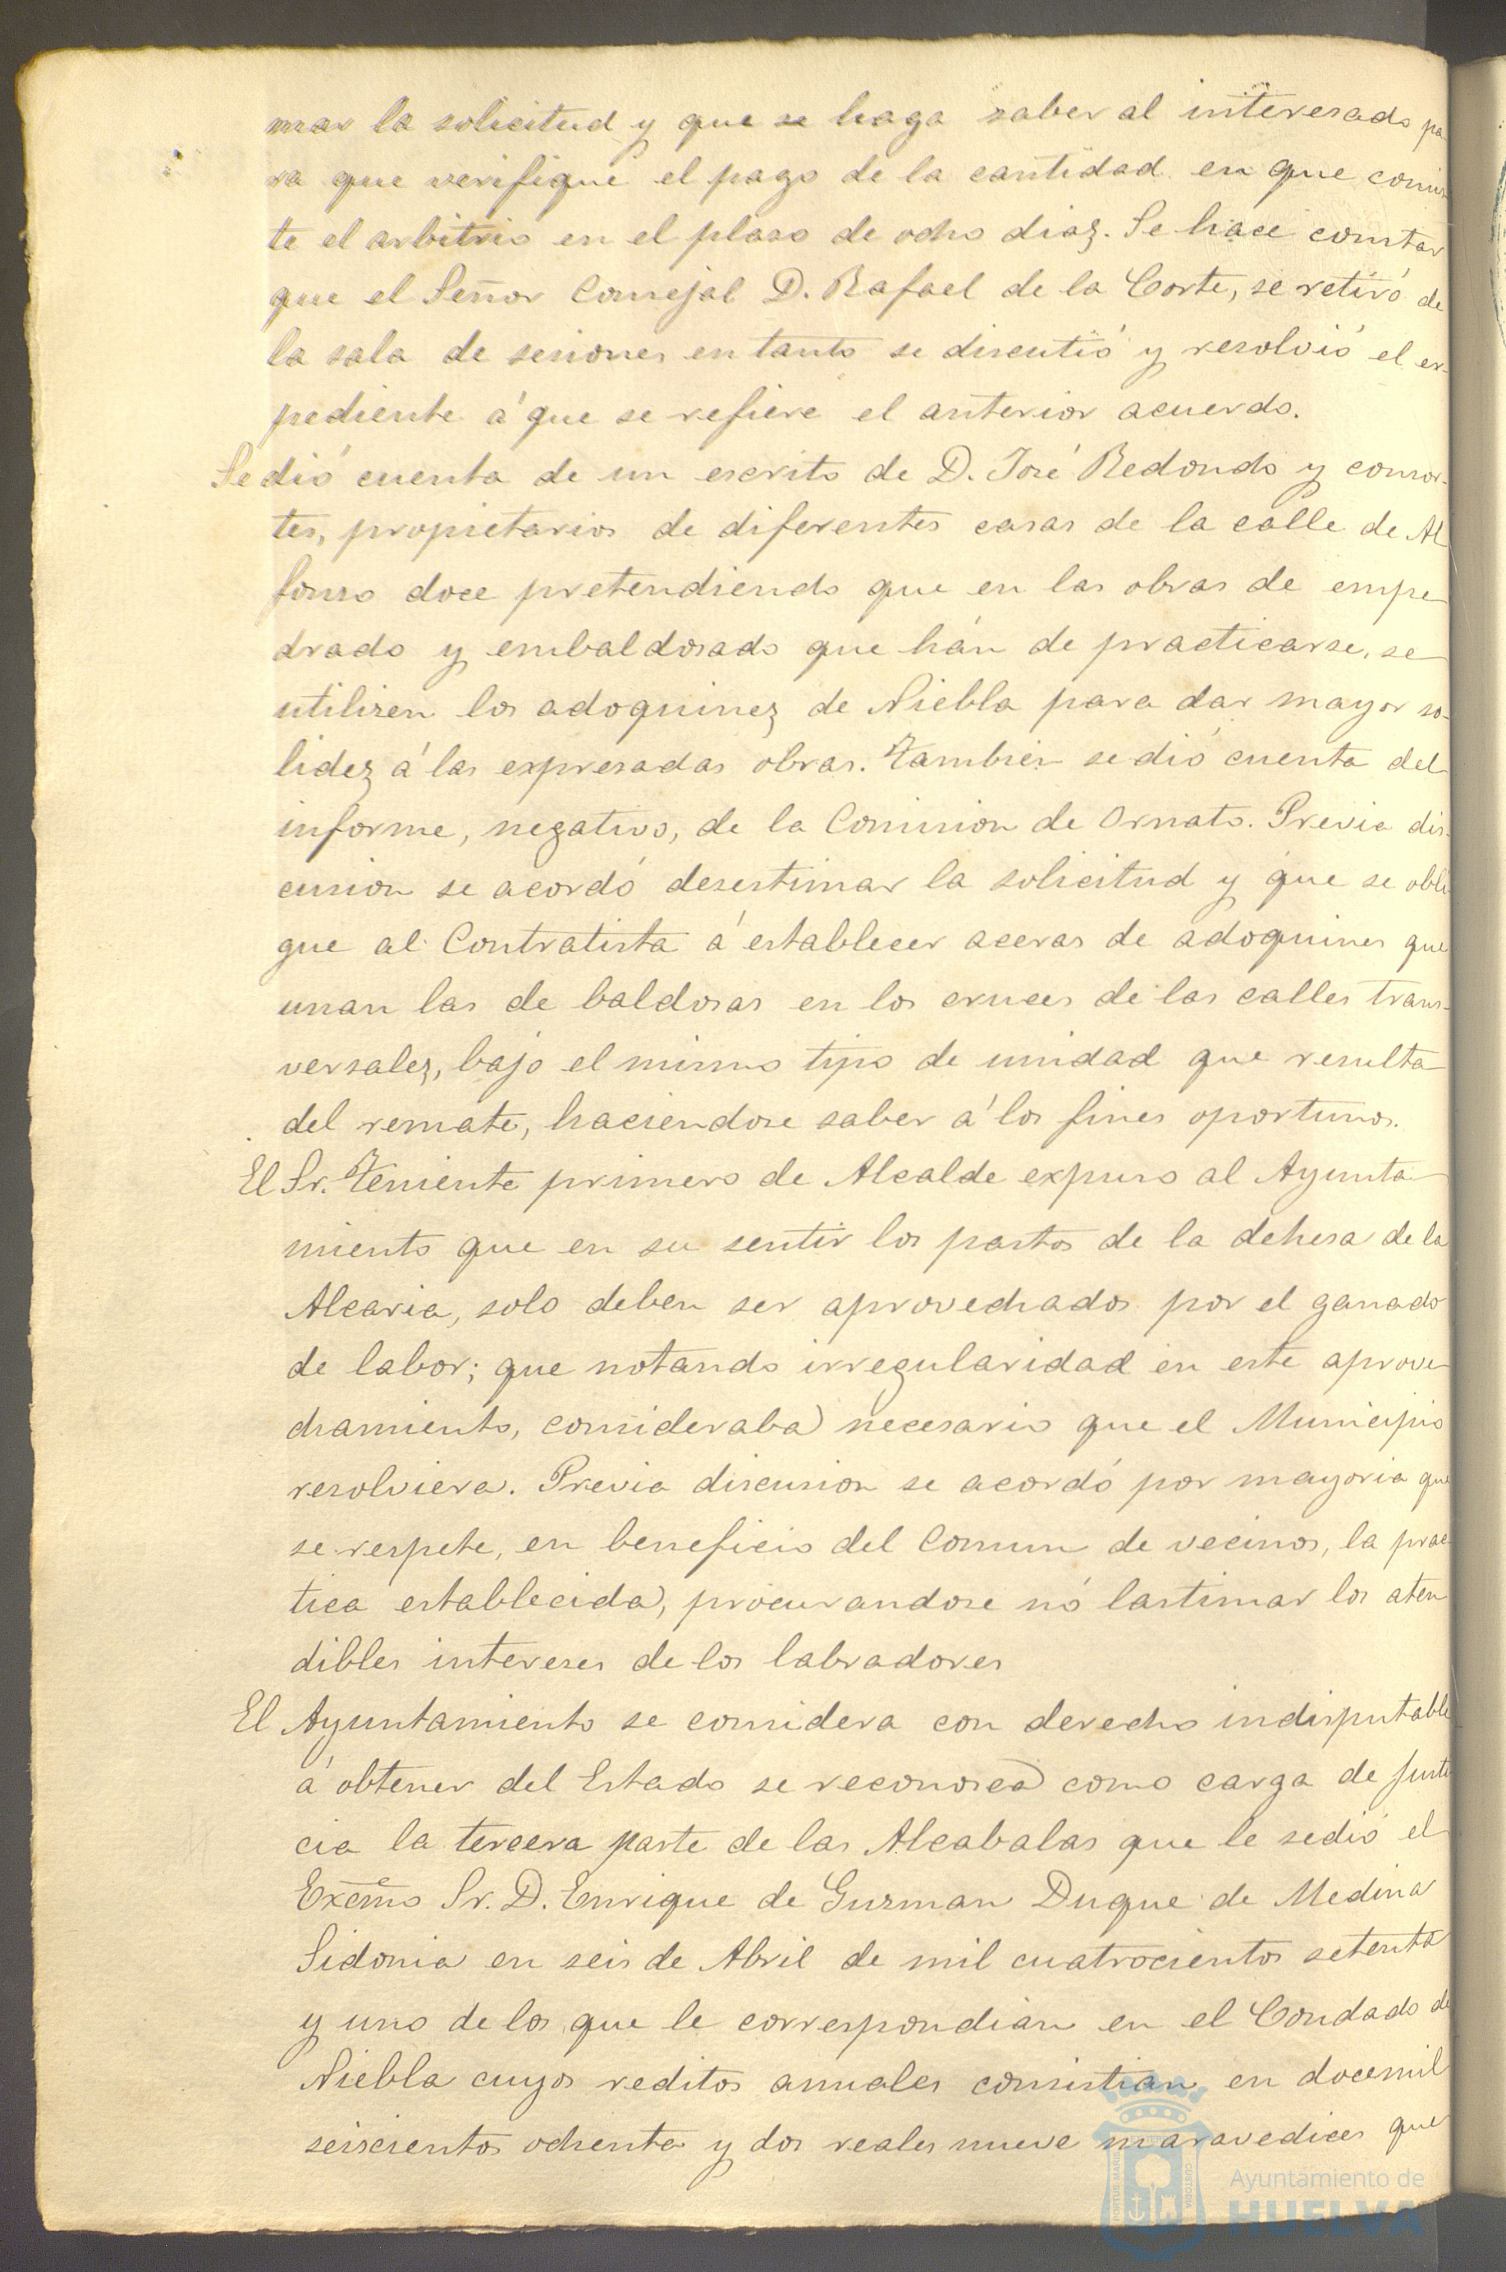 mar la solicitud y que se haga saber al interesado pa
ra que verifique el pago de la cantidad en que consis
te el arbitrio en el plaso de ocho diaz. Se hace constar
que el Señor Consejal D. Rafael de la Corte, se retiró de
la sala de sesiones en tanto se discutió y resolvió el ex-
pediente á que se refiere el anterior acuerdo.
Se dió cuenta de un escrito de D. José Redondo y consor-
tes, propietarios de diferentes casas de la calle de Al
fonso doce pretendiendo que en las obras de empe
drado y embaldosado que hán de practicarse, se
utilisen los adoquinez de Niebla para dar mayor so-
lidez á las expresadas obras. Tambien se dió cuenta del
informe, negativo, de la Comision de Ornato. Previa dis-
cusion se acordó desestimar la solicitud y que se obli
gue al Contratista á establecer aceras de adoquines que
unan las de baldosas en los cruces de las calles trans-
versalez, bajo el mismo tipo de unidad que resulta
del remate, haciendose saber á los fines oportunos.
El Sr. Teniente primero de Alcalde expuso al Ayunta
miento que en su sentir los pastos de la dehesa de la
Alcaria, solo deben ser aprovechados por el ganado
de labor; que notando irregularidad en este aprove
chamiento, consideraba necesario que el Municipio
resolviera. Previa discusion se acordó por mayoria que
se respete, en beneficio del Comun de vecinos, la prac
tica establecida, procurandose nó lastimar los aten
dibles intereses de los labradores
El Ayuntamiento se considera con derecho indisputable
á obtener del Estado se reconosca como carga de justi
cia la tercera parte de las Alcabalas que le sedió el
Excmo Sr. D. Enrique de Gusman Duque de Medina
Sidonia en seis de Abril de mil cuatrocientos setenta
y uno de los que le correspondian en el Condado de
Niebla cuyos reditos anuales consistian en docemil
seiscientos ochenta y dos reales nueve maravedices que
Ayuntamiento de
HUELVA